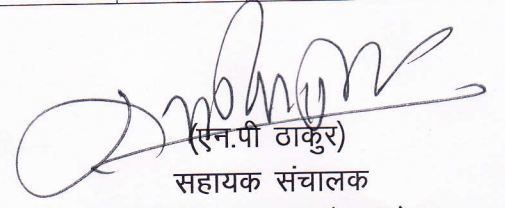 (एन.पी ठाकुर)
सहायक संचालक